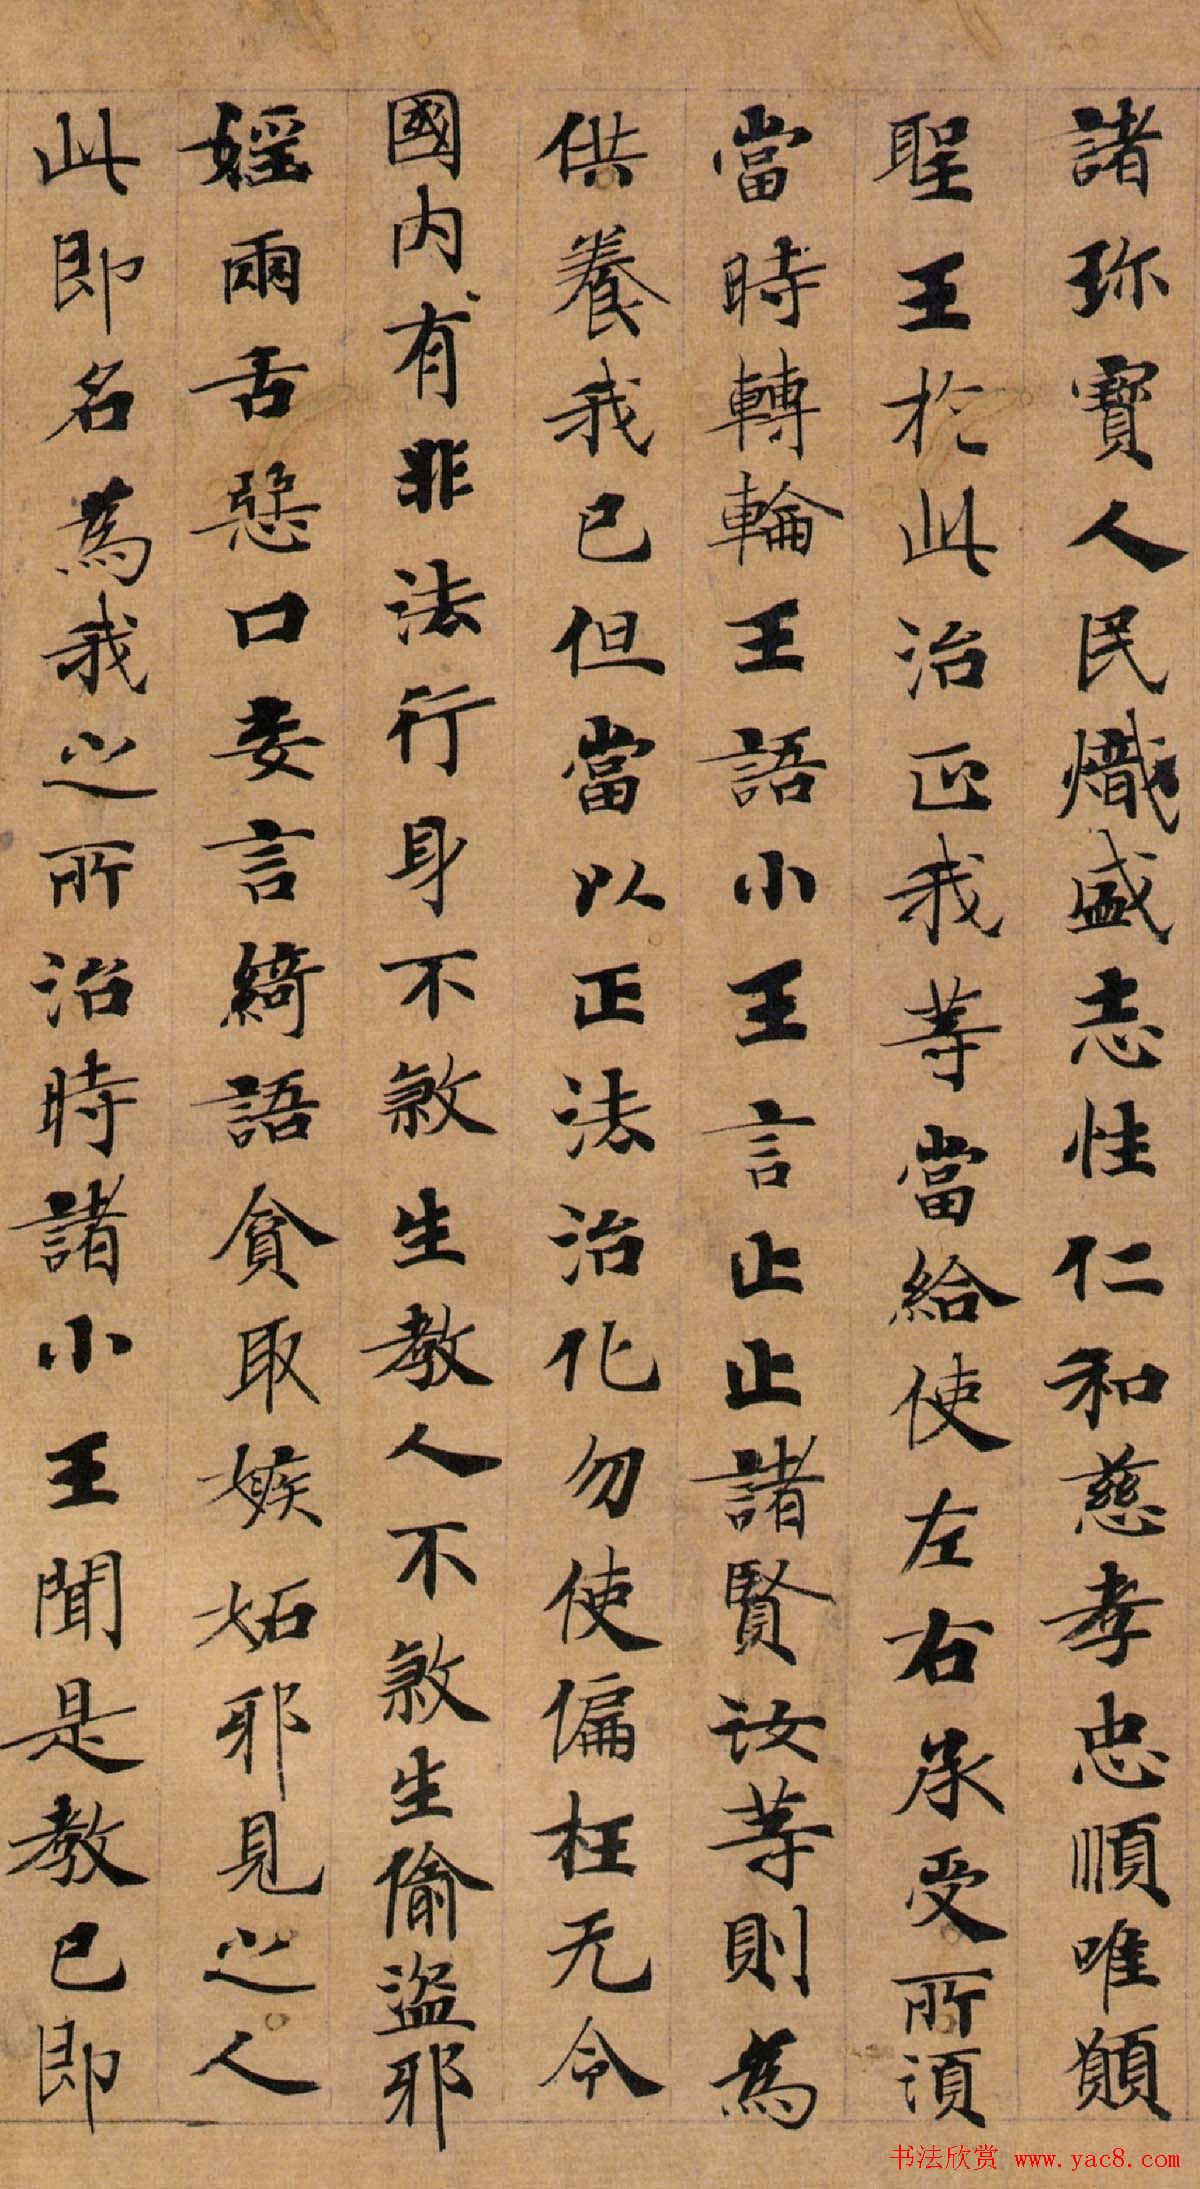 諸珎寳人民熾盛志性仁和慈孝忠順唯願
聖王於此治正我等當給使左右承受所須
當時轉輪王語小王言止止諸賢汝等則為
供養我已但當以正法治化勿使偏枉无令
國内有非法行身不煞生教人不煞生偷盜耶
婬兩舌惡口妄言綺語貪取嫉妬耶見之人
此即名為我之所治時諸小王聞是教已即
书法欣赏 www.yac8.com